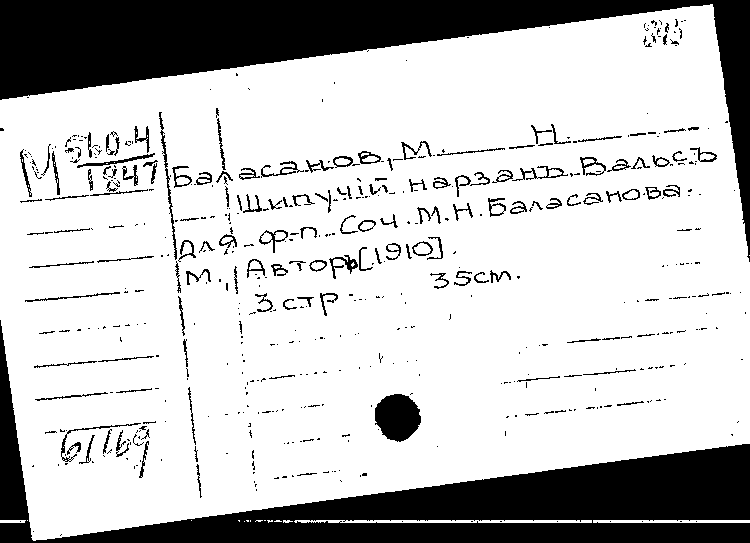 М 510-4
1847
Баласанов, М. Н.
Шипучiй нарзанъ. Вальсъ
для ф-п. Соч. М.Н. Баласанова.
М., Авторъ [1910].
3 стр. 35 cm.
61169